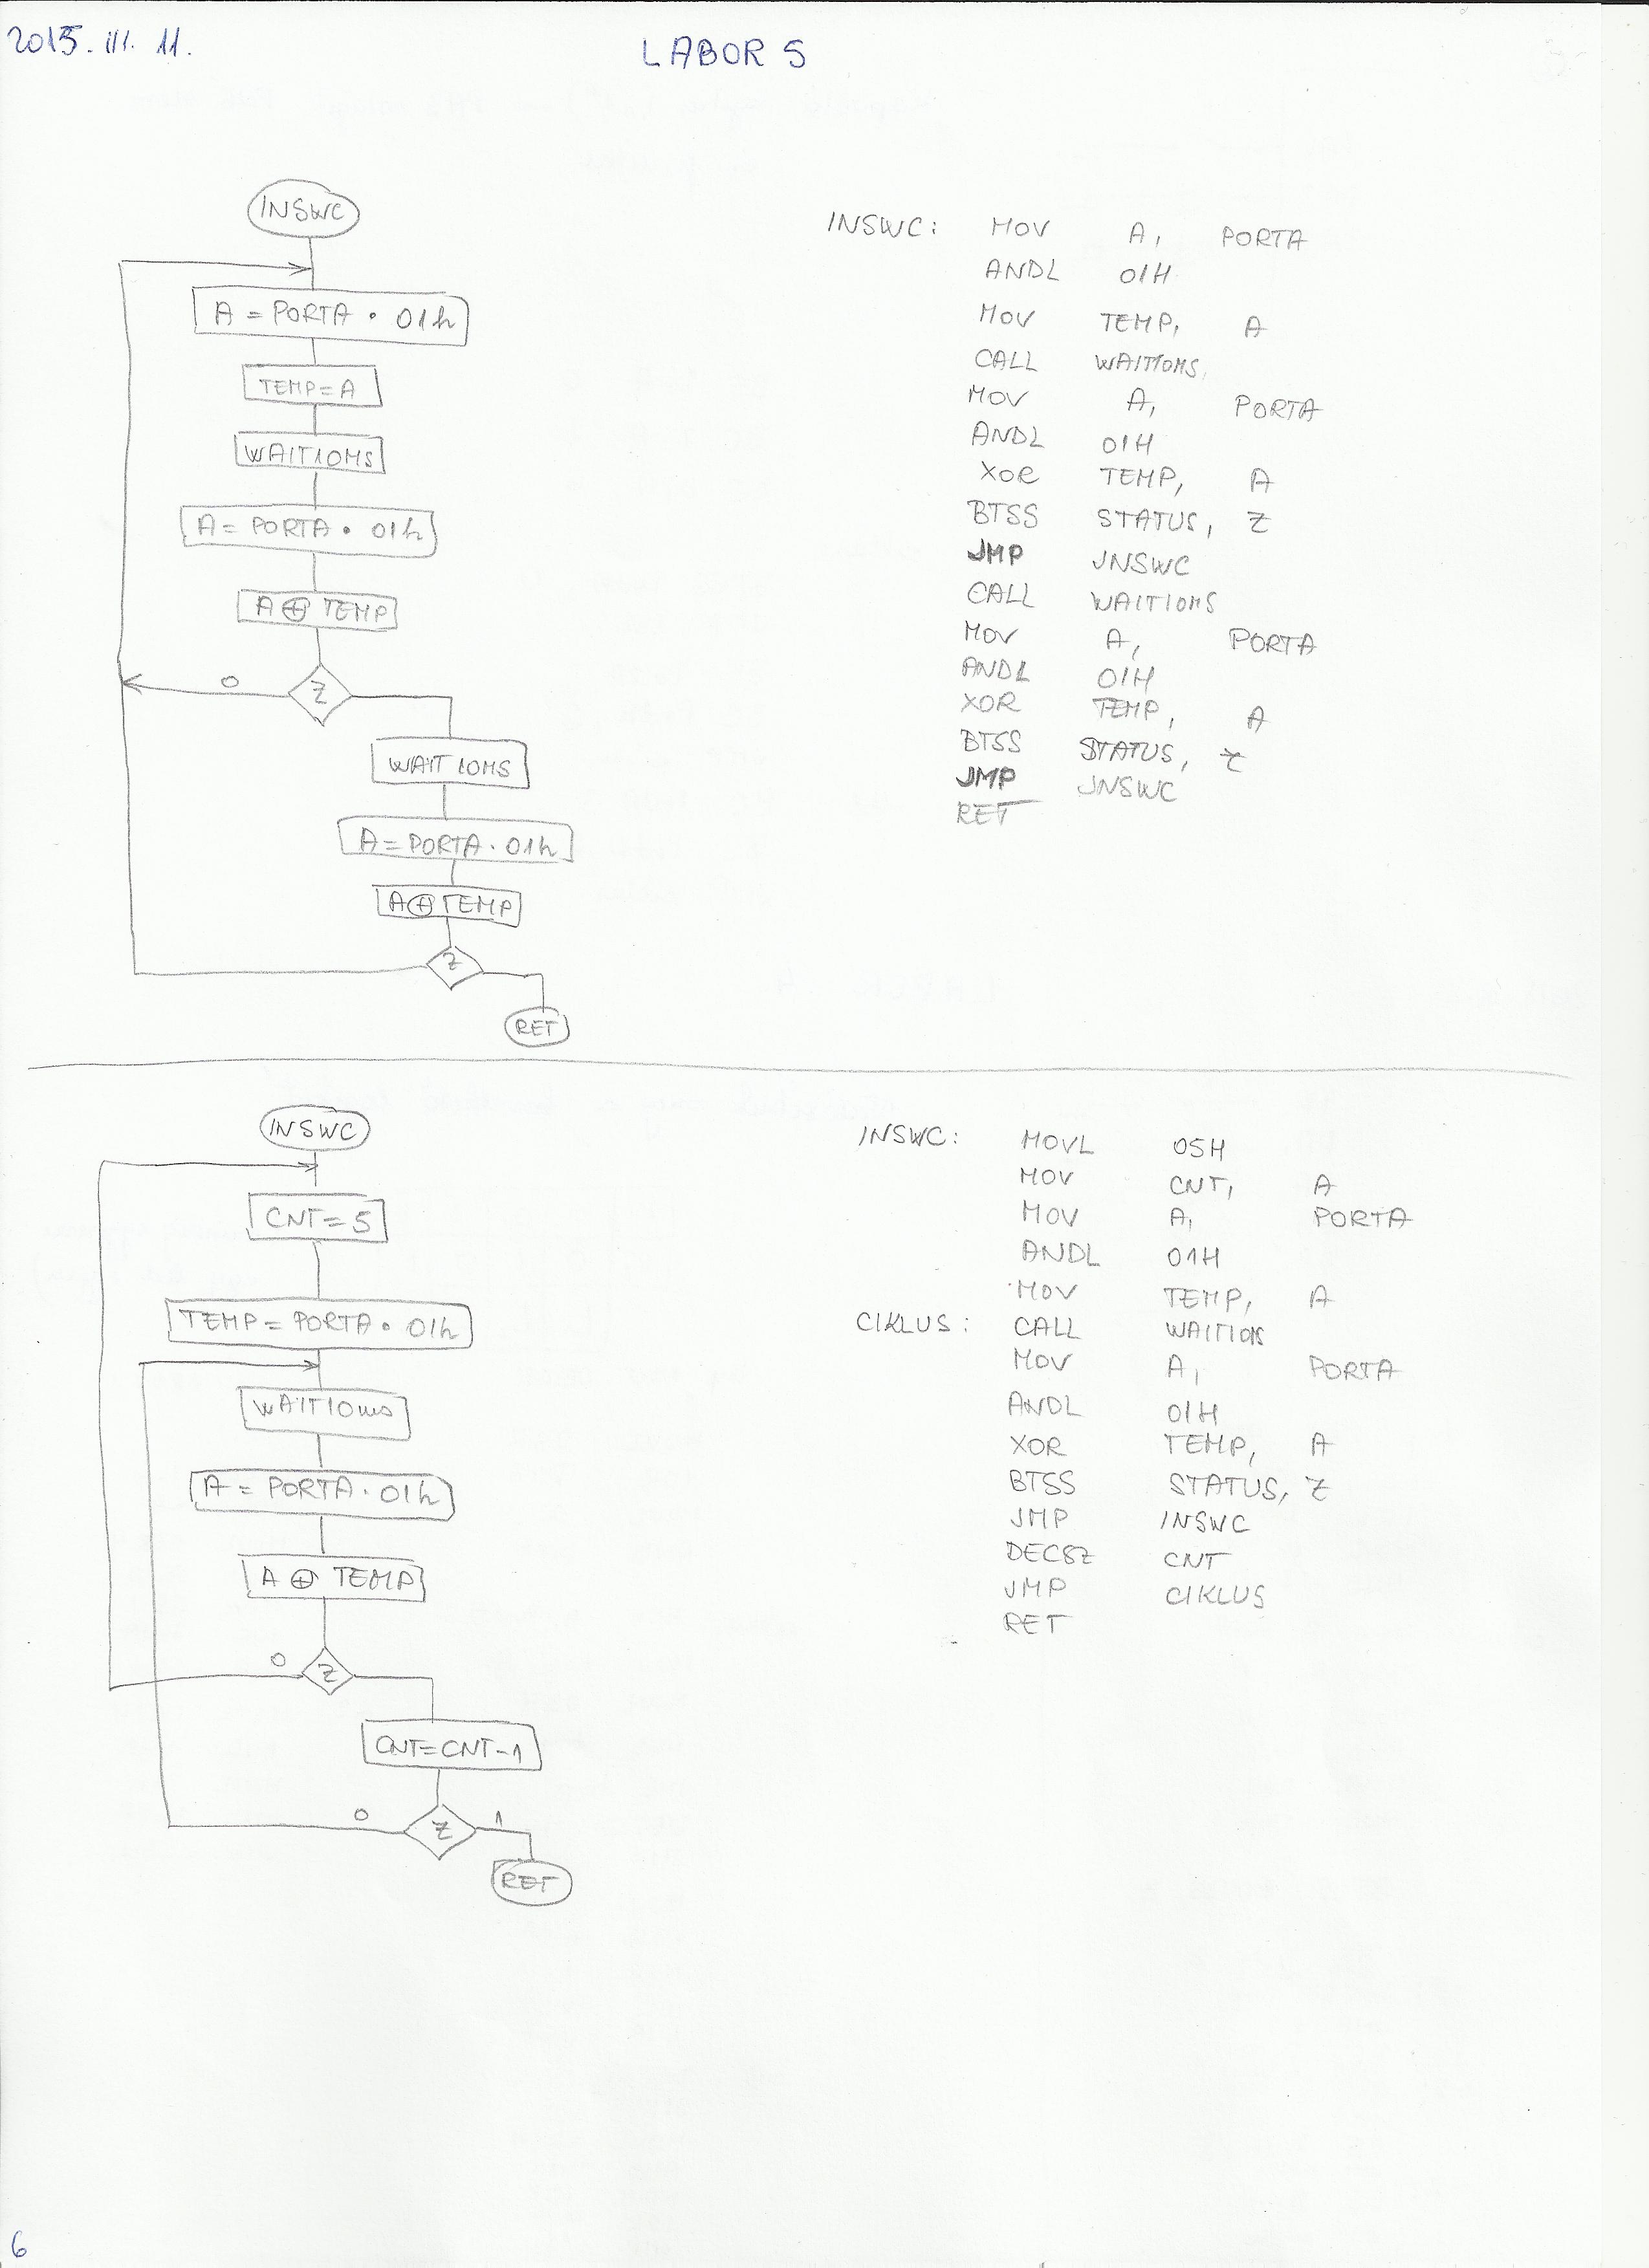 2015. III. 11.
LABOR 5
INSWC
A = PORTA · 01h
TEMP=A
WAIT10MS
A = PORTA · 01h
A ⊕ TEMP
Z
0
WAIT 10MS
A = PORTA · 01h
A⊕TEMP
Z
RET
INSWC: MOV A, PORTA
ANDL 01H
MOV TEMP, A
CALL WAIT10MS
MOV A, PORTA
ANDL 01H
XOR TEMP, A
BTSS STATUS, Z
JMP INSWC
CALL WAIT10MS
MOV A, PORTA
ANDL 01H
XOR TEMP, A
BTSS STATUS, Z
JMP INSWC
RET
INSWC
CNT=5
TEMP = PORTA · 01h
WAIT10ms
A = PORTA · 01h
A ⊕ TEMP
0
Z
CNT=CNT-1
0
Z
1
RET
INSWC: MOVL 05H
MOV CNT, A
MOV A, PORTA
ANDL 01H
MOV TEMP, A
CIKLUS: CALL
MOV A, PORTA
ANDL 01H
XOR TEMP, A
BTSS STATUS, Z
JMP INSWC
DECSZ CNT
JMP CIKLUS
RET
6